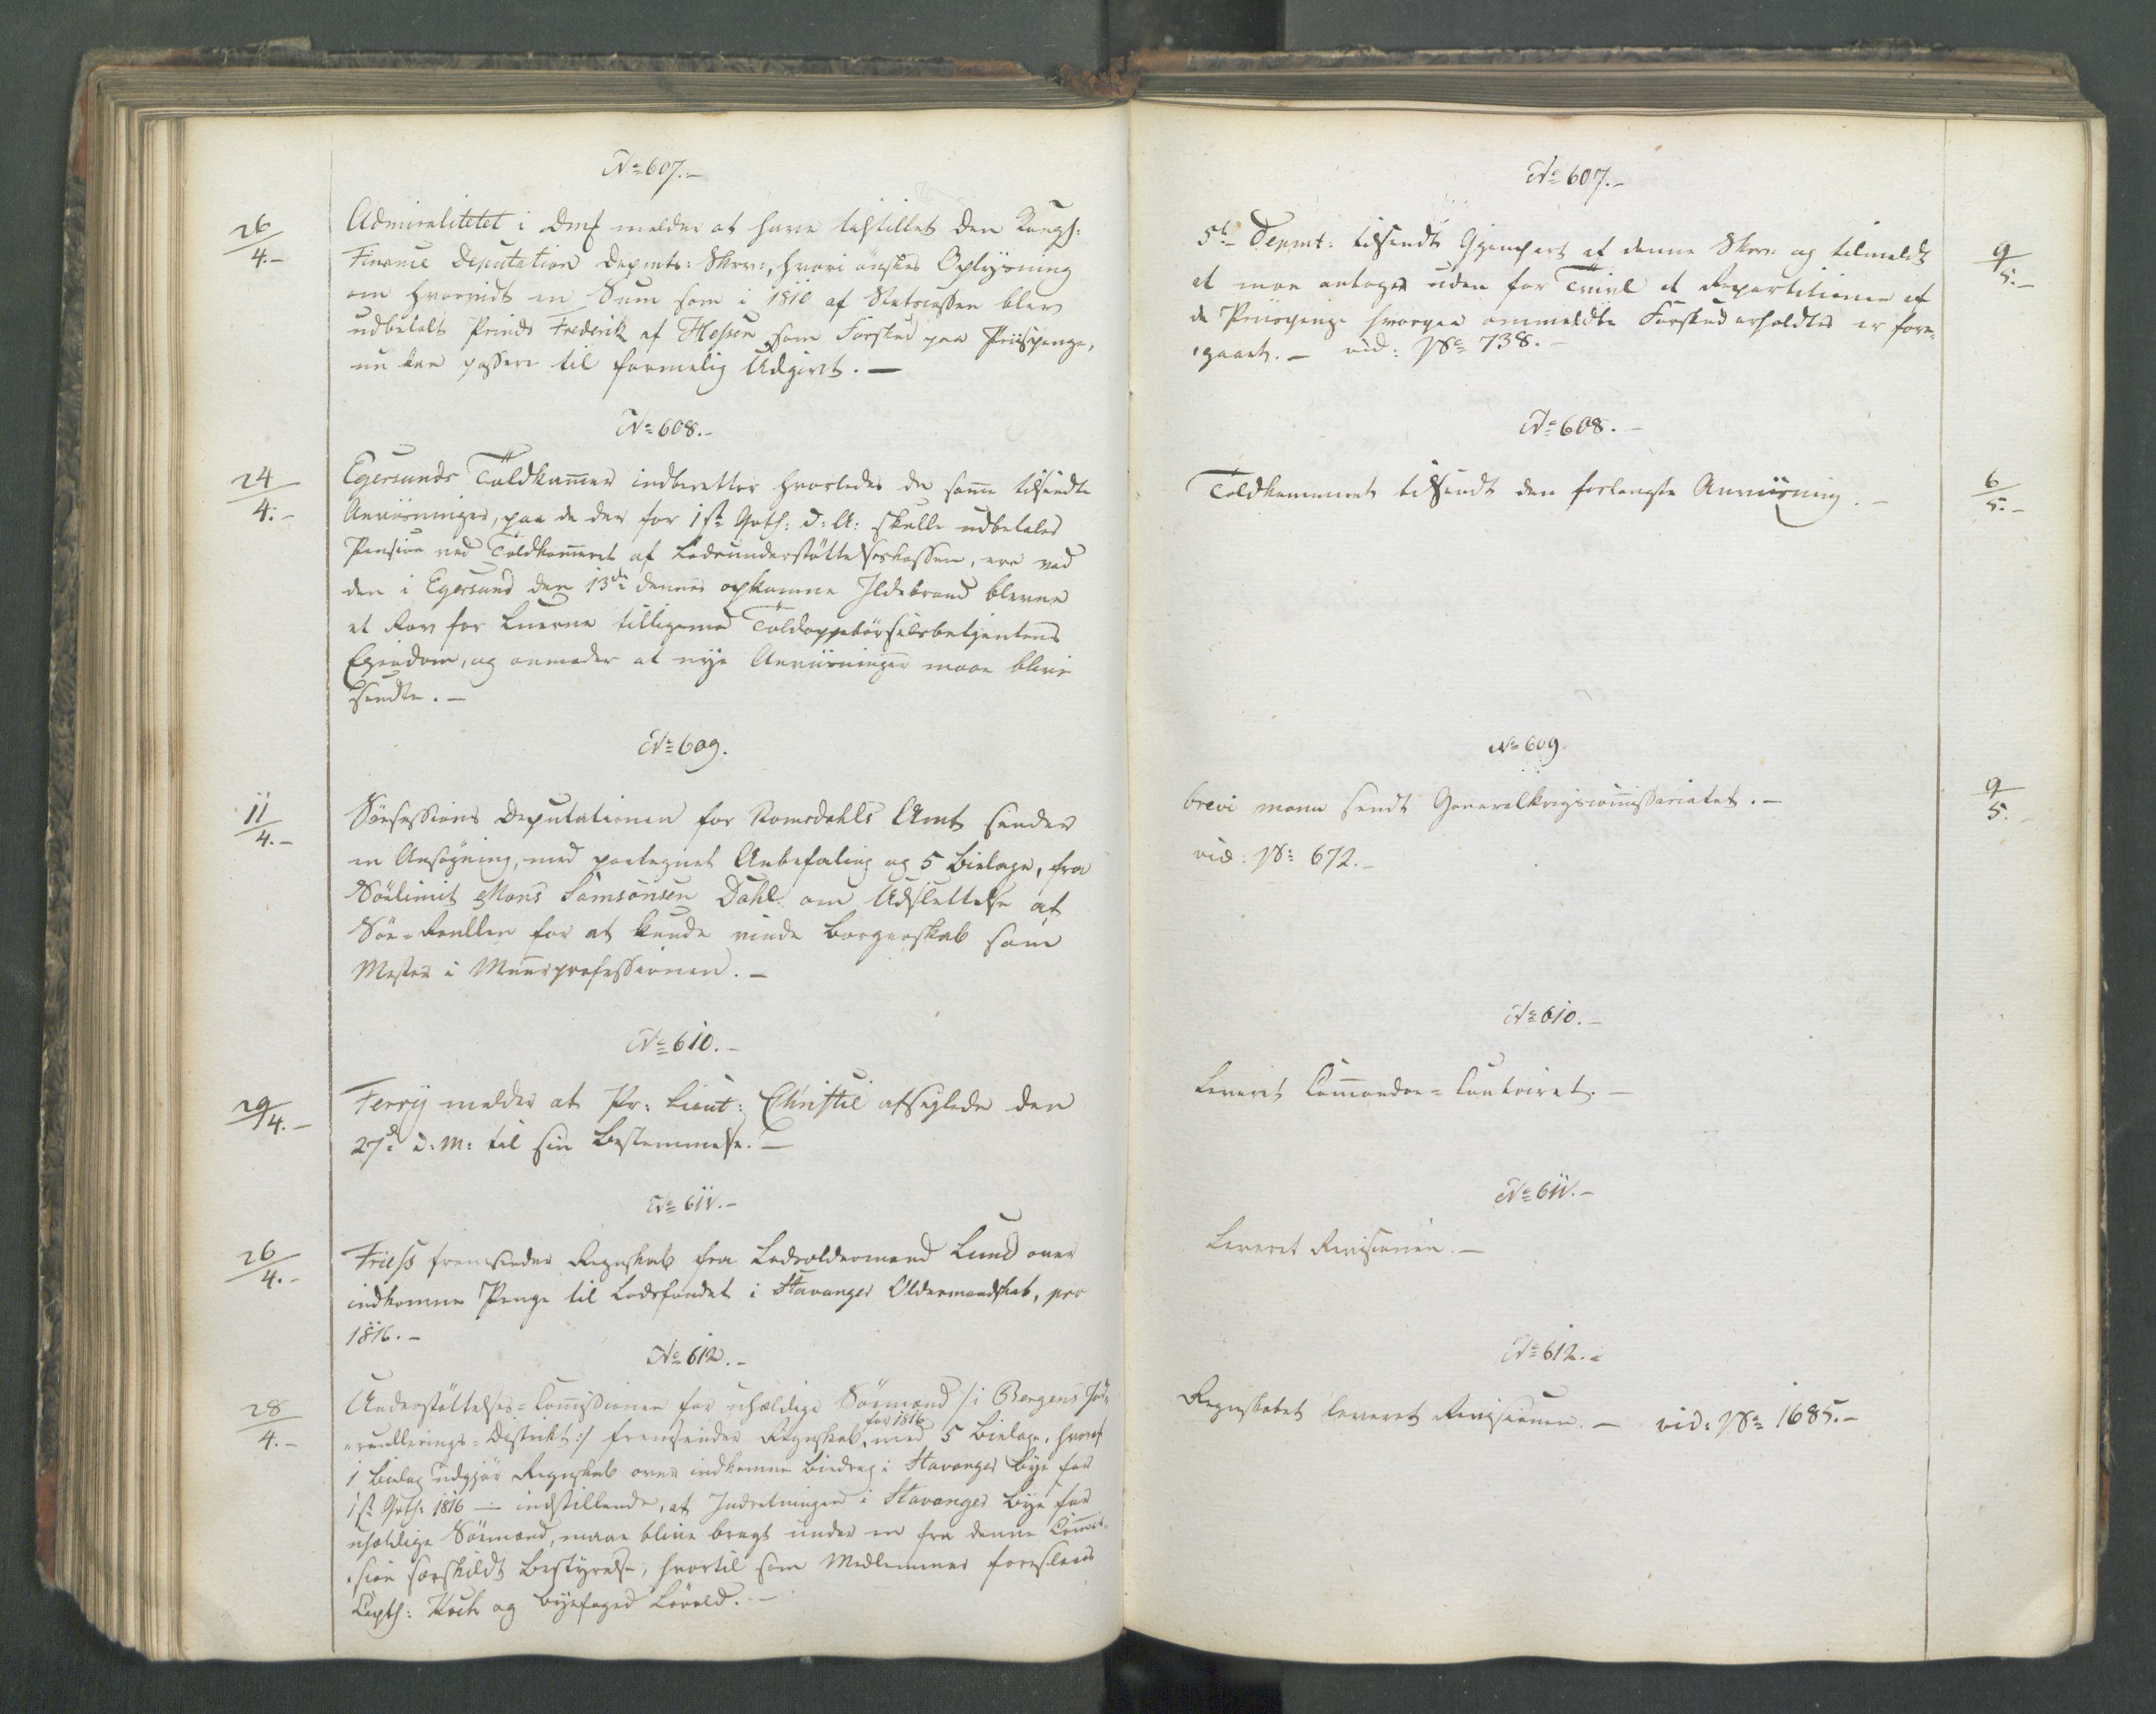 No 607.-
26/4.-
Admiralitetet i Dmk melder at have tilstillet den Kongl:
Finance Deputation Depmts: Skrv:, hvori ønskes Oplysning
om hvorvidt en Sum som i 1810 af Statscassen blev
udbetalt Prinds Frederik af Hessen som Forskud paa Priispenge,
nu kan passere til formelig Udgivt. —
No 608.-
24/4.-
Egersunds Toldkammer indberetter hvorledes de samme tilsendte
Anviisninger, paa de der for 1ste d: A: skulle udbetales
Pension ved Toldkammeret af Lodsunderstøttelseskassen, ere ved
den i Egersund den 13de dennes opkomne Ildebrand blevne
et Rov for Luerne tilligemed Toldoppebørselsbetjentens
Eiendom, og anmoder at nye Anviisninger maae blive
sendte. -
No 609.
11/4.-
Søesessions Deputationen for Romsdahls Amt sender
en Ansøgning, med paategnet Anbefaling og 5 Bielage, fra
Søelimit Mons Samsonsen Dahl om Udslettelse af
Søe-Rullen for at kunde vinde Borgerskab som
Mester i Muurprofessionen. -
No 610.-
29/4.-
Ferry melder at Pr: Lieut: Christie afseylede den
27de d: M: til sin Bestemmelse. -
No 611.-
26/4.-
Friess fremsender Regnskab fra Lodsoldermand Lund over
indkomne Penge til Lodsfondet i Stavanger Oldermandskab, pro
1816.-
No 612.-
28/4.-
Understøttelses-Commissionen for uheldige Sømænd /: i Bergens Ind-
-rullerings-Distrikt :/ fremsender Regnskab for 1816 med 5 Bielage, hvoraf
1 Bielag udgjør Regnskab over indkomne Biedrag i Stavanger Bye for
1ste 1816 — indstillende, at Indretningen i Stavanger Bye for
uheldige Sømænd, maae blive bragt under en fra denne Commis-
-sion særskildt Bestyrelse, hvortil som Medlemmer foreslaaes
Capt: Koch og Byefoged Løvold. -
No 607.-
5te Depmt: tilsendt Gjenpart af denne Skrv: og tilmeldt
at man antager uden for Tvivl at Repartitionen af
de Priispenge hvorpaa ommeldte Forskud erholdtes er fore-
-gaaet. - vid: No 738.-
9/5.-
No 608.-
Toldkammeret tilsendt den forlangte Anviisning. -
6/5.-
No 609.
brevi manu sendt Generalkrigscommissariatet. -
vid: No 672.-
9/5.
No 610.-
Leveret Commandoe-Contoiret. -
No 611.-
Leveret Revisionen. -
No 612.-
Regnskabet leveret Revisionen. - vid: No 1685.-